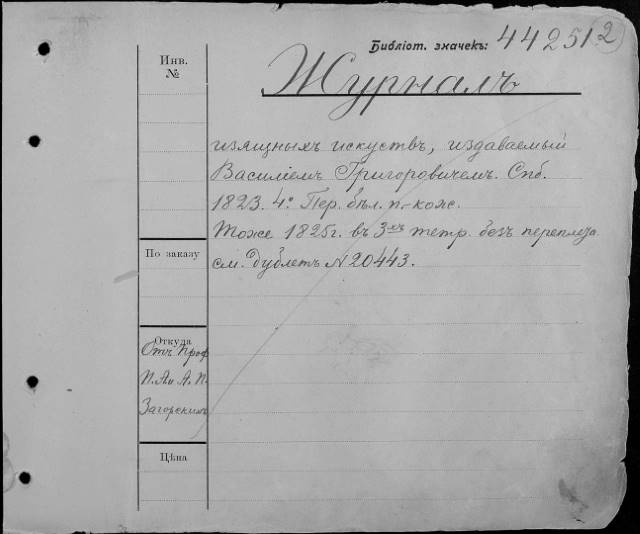 Библіот. значекъ: 44251 2
Инв.
№
Журналъ
изящныхъ искуствъ, издаваемый
Василіемъ Григоровичемъ. Спб.
1823. 4º Пер. бѣл. п-кож.
Тоже 1825г. въ 3хъ тетр. безъ переплета
см. Дублетъ № 20443.
По заказу
Откуда
Отъ Проф
П. А. и А. П.
Загорскихъ
Цѣна